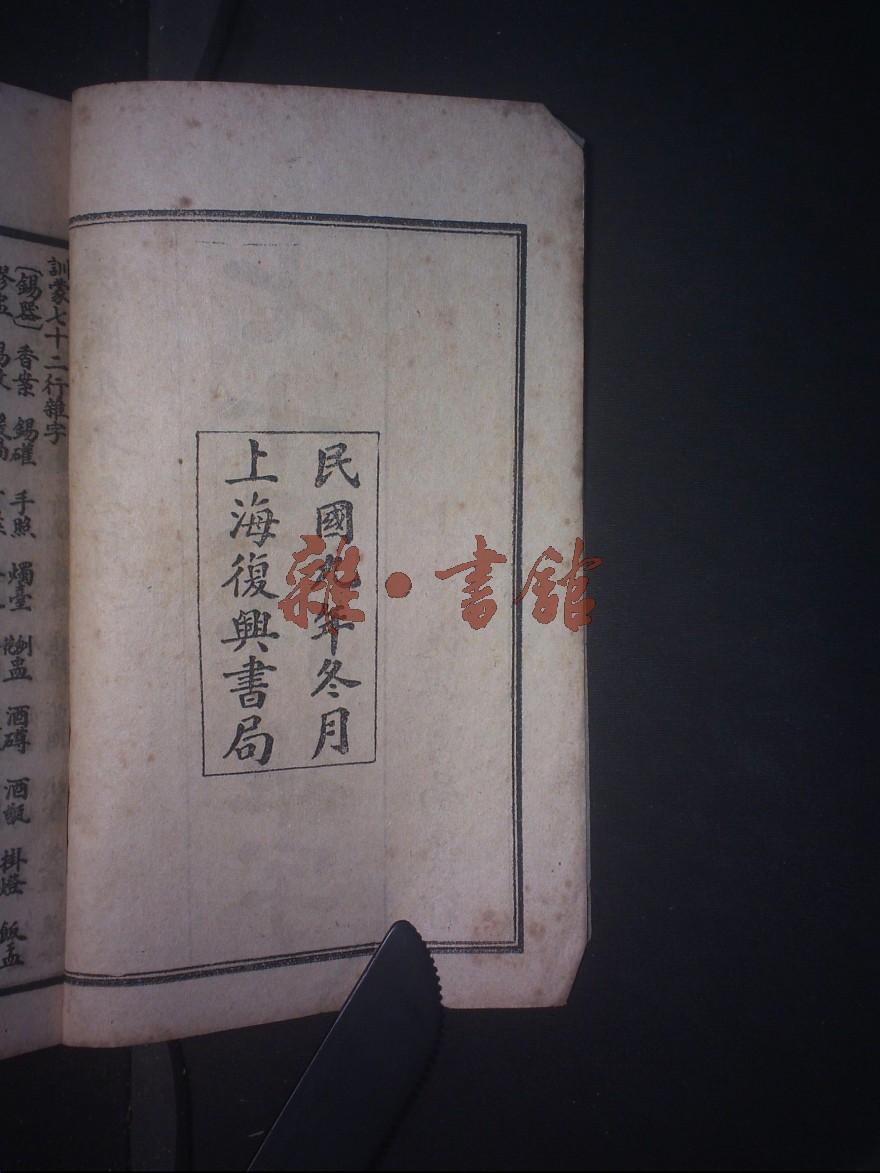 民國九年冬月
上海復興書局
雜·書館
訓蒙七十二行雜字
(錫器) 香案 錫礶 手照 燭臺 酒礴 酒瓶 掛燈 飯盂